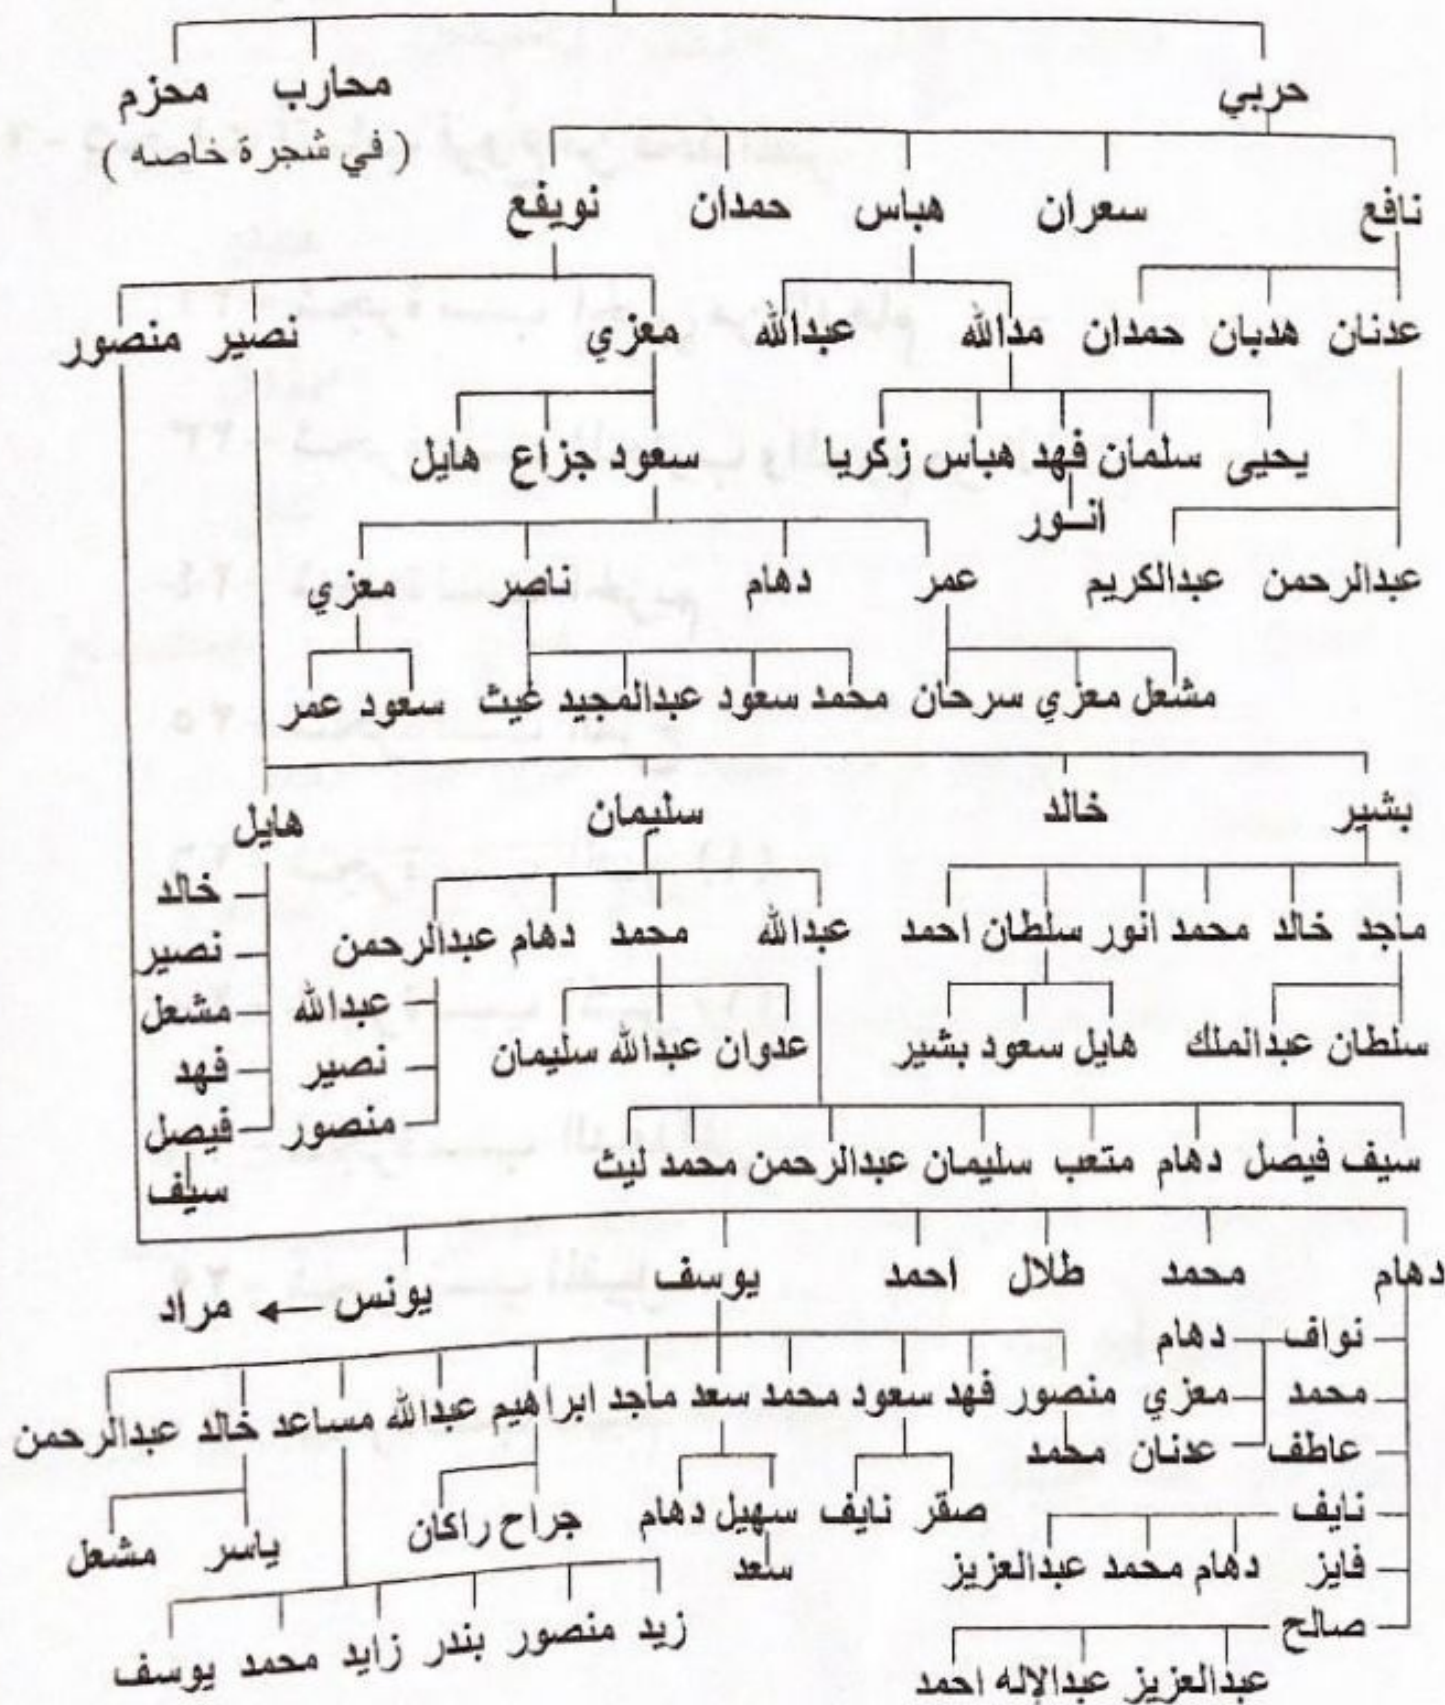 حربي محارب محزم
( في شجرة خاصه )
نافع سعران هباس حمدان نويفع
عدنان هدبان حمدان مدالله عبدالله معزي نصير منصور
يحيى سلمان فهد هباس زكريا سعود جزاع هايل
انور
عبدالرحمن عبدالكريم عمر دهام ناصر معزي
مشعل معزي سرحان محمد سعود عبدالمجيد غيث سعود عمر
بشير خالد سليمان هايل
خالد
ماجد خالد محمد انور سلطان احمد عبدالله محمد دهام عبدالرحمن نصير
عبدالله مشعل
سلطان عبدالملك هايل سعود بشير عدوان عبدالله سليمان نصير فهد
منصور فيصل
سيف فيصل دهام متعب سليمان عبدالرحمن محمد ليث سيف
دهام محمد طلال احمد يوسف يونس مراد
نواف دهام
محمد معزي منصور فهد سعود محمد سعد ماجد ابراهيم عبدالله مساعد خالد عبدالرحمن
عاطف عدنان محمد
نايف صقر نايف سهيل دهام جراح راكان ياسر مشعل
فايز دهام محمد عبدالعزيز سعد
صالح زيد منصور بندر زايد محمد يوسف
عبدالعزيز عبدالإله احمد